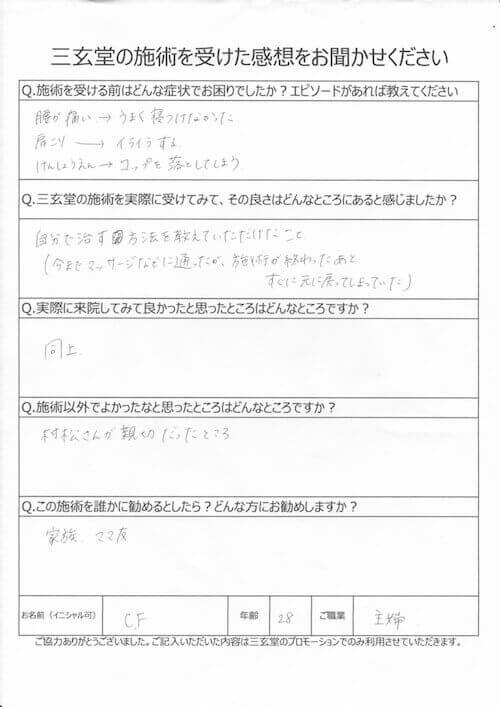 三玄堂の施術を受けた感想をお聞かせください
Q.施術を受ける前はどんな症状でお困りでしたか？エピソードがあれば教えてください
腰が痛い→うまく寝つけなかった
肩こり → イライラする
けんしょうえん→コップを落としてしまう
Q.三玄堂の施術を実際に受けてみて、その良さはどんなところにあると感じましたか？
自分で治す方法を教えていただけたこと
(今までマッサージなどに通ったが、施術が終わったあと
すぐに元に戻ってしまっていた)
Q.実際に来院してみて良かったと思ったところはどんなところですか？
同上
Q.施術以外でよかったなと思ったところはどんなところですか？
村松さんが親切だったところ
Q.この施術を誰かに勧めるとしたら？どんな方にお勧めしますか？
家族、ママ友
お名前（イニシャル可） C.F 年齢 28 ご職業 主婦
ご協力ありがとうございました。ご記入いただいた内容は三玄堂のプロモーションでのみ利用させていただきます。